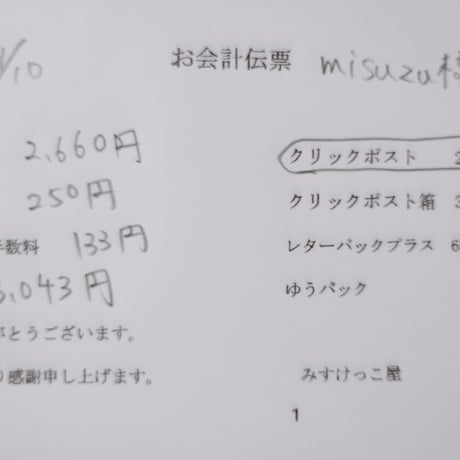 /10 お会計伝票 misuzu様
2,660円 クリックポスト 2
250円 クリックポスト箱 3
手数料 133円 レターパックプラス 6
3,043円 ゆうパック
がとうございます。
り感謝申し上げます。 みすけっこ屋
1